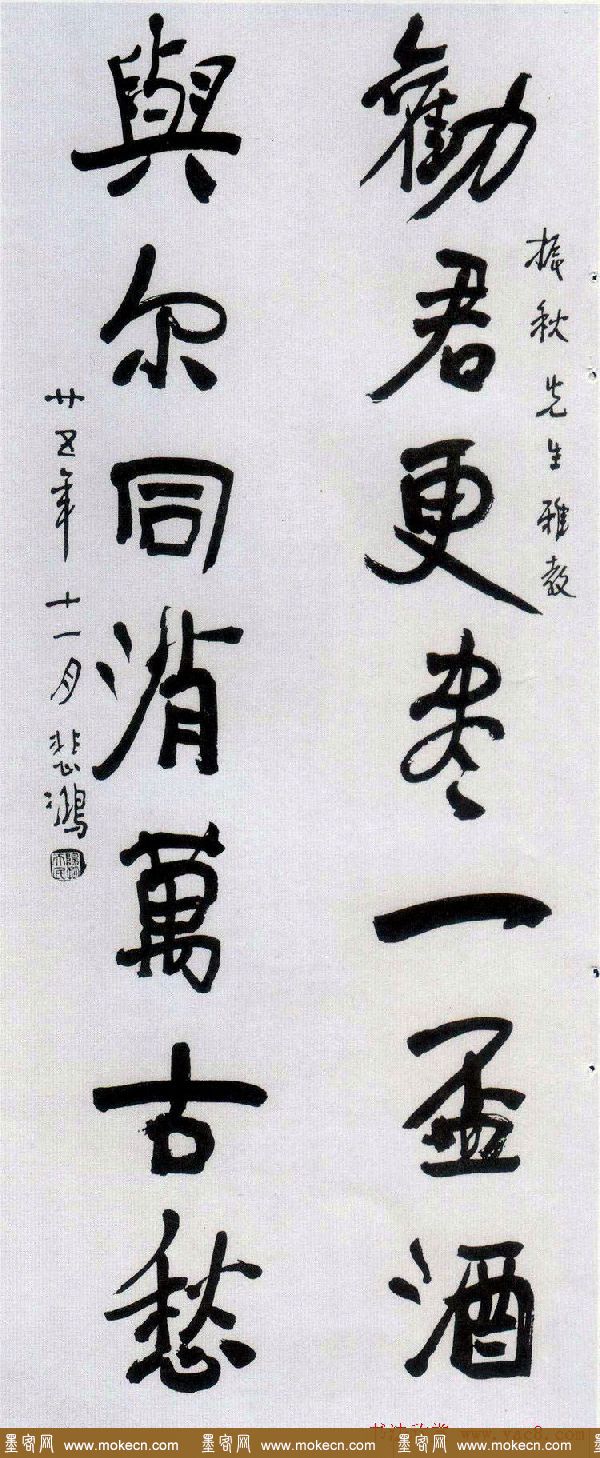 振秋先生雅教
勸君更盡一盃酒
與尔同消萬古愁
廿五年十一月悲鴻
书法欣赏 www.yac8.com
墨客网 www.mokecn.com 墨客网 www.mokecn.com 墨客网 www.mokecn.com